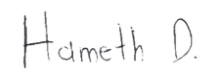 Hameth D.